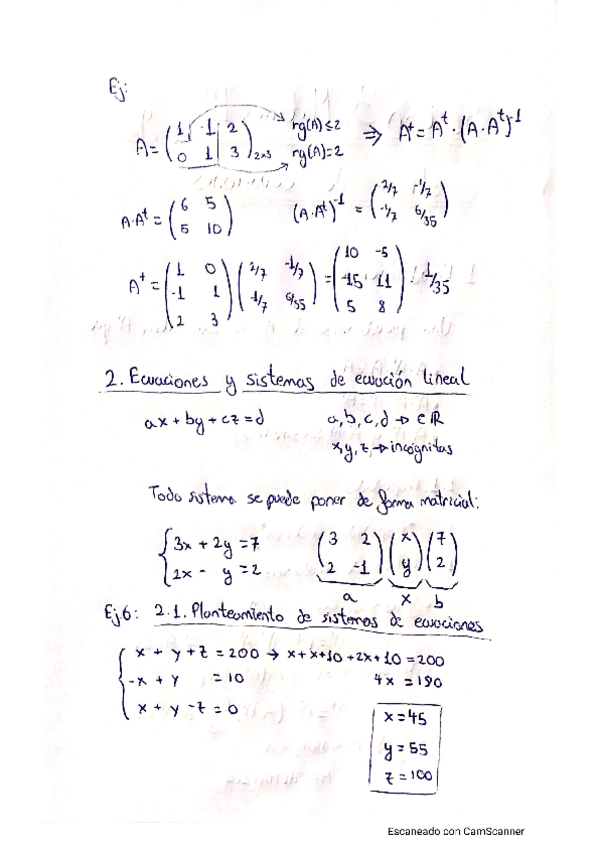 Ej:
A = ( 1 -1 2 ; 0 1 3 ) 2x3 rg(A) ≤ 2 rg(A) = 2 ⇒ A⁺ = Aᵗ · (A · Aᵗ)⁻¹
A·Aᵗ = ( 6 5 ; 5 10 ) (A·Aᵗ)⁻¹ = ( 2/7 -1/7 ; -1/7 6/35 )
A⁺ = ( 1 0 ; -1 1 ; 2 3 ) ( 2/7 -1/7 ; -1/7 6/35 ) = ( 10 -5 ; -15 11 ; 5 8 ) · 1/35
2. Ecuaciones y sistemas de ecuación lineal
ax + by + cz = d a, b, c, d → ∈ ℝ
x, y, z, → incógnitas
Todo sistema se puede poner de forma matricial:
{ 3x + 2y = 7 ( 3 2 ) ( x ) ( 7 )
2x - y = 2 ( 2 -1 ) ( y ) ( 2 )
a x b
Ej 6: 2.1. Planteamiento de sistemas de ecuaciones
{ x + y + z = 200 → x + x + 10 + 2x + 10 = 200
-x + y = 10 4x = 180
x + y - z = 0 x = 45
y = 55
z = 100
Escaneado con CamScanner